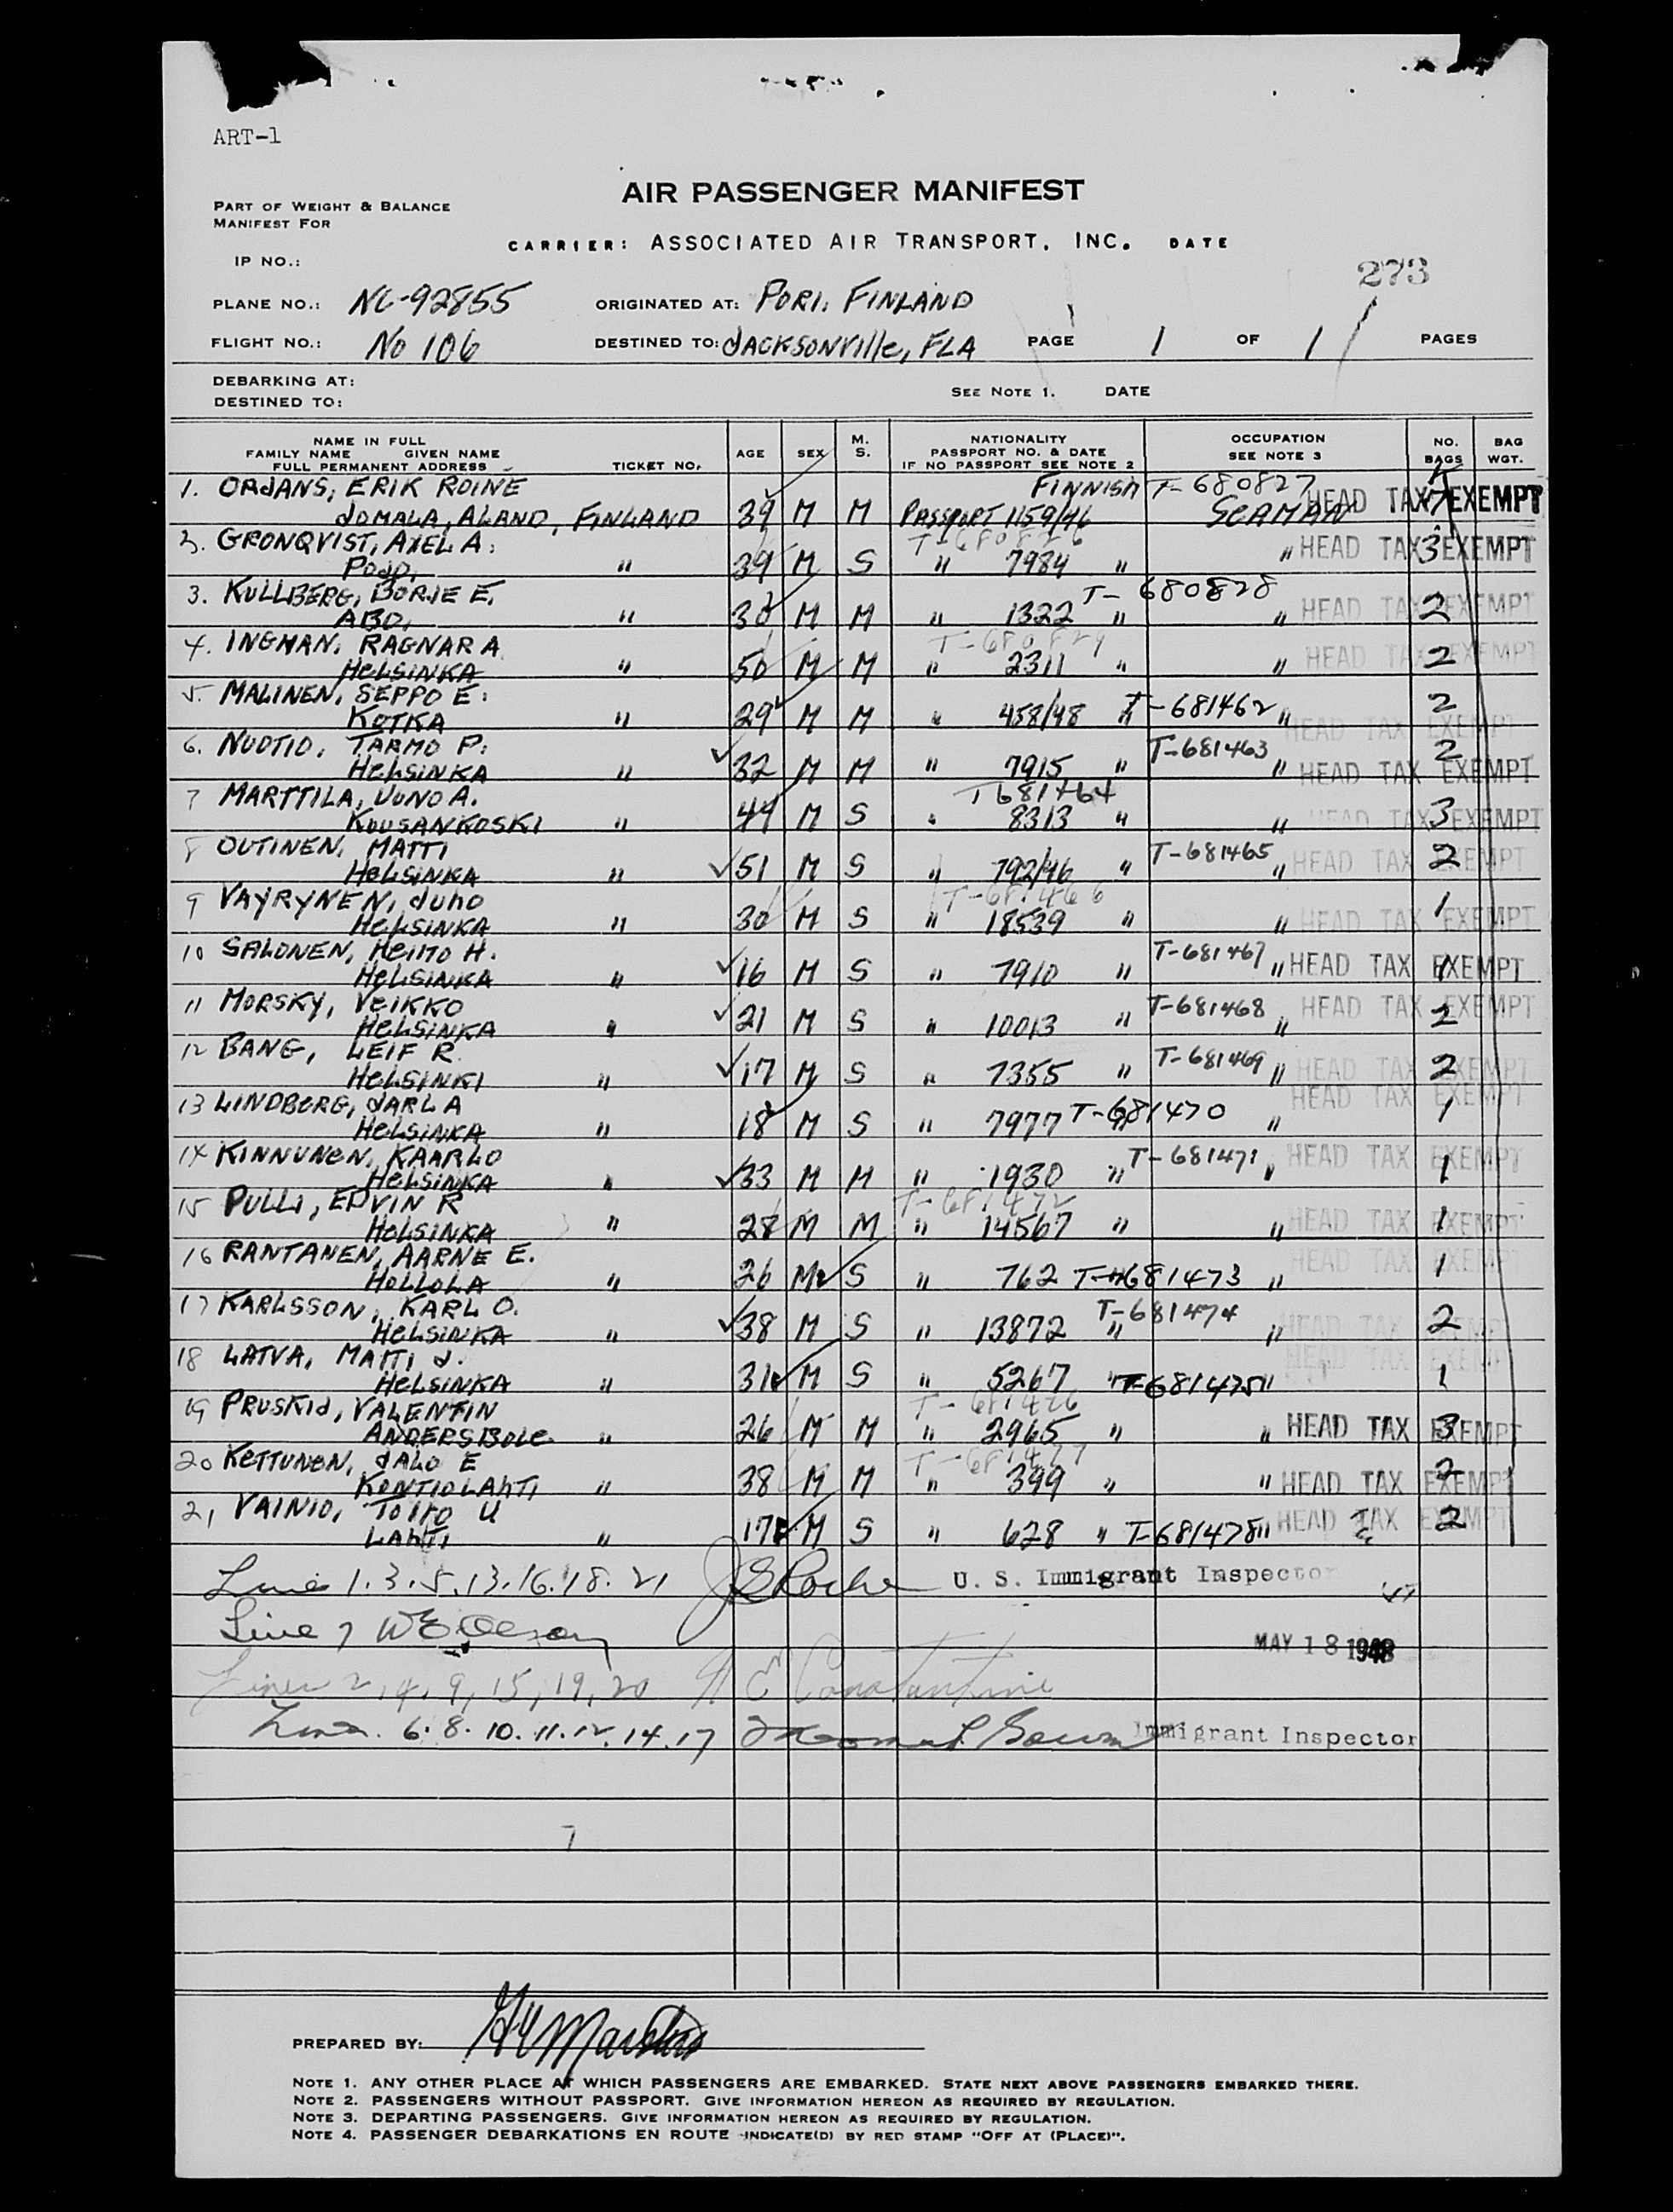 ART-1
AIR PASSENGER MANIFEST
PART OF WEIGHT & BALANCE
MANIFEST FOR
CARRIER: ASSOCIATED AIR TRANSPORT, INC. DATE
IP NO.:
273
PLANE NO.: NC-92855 ORIGINATED AT: PORI, FINLAND
FLIGHT NO.: No 106 DESTINED TO: JACKSONVIlle, FLA PAGE 1 OF 1 PAGES
DEBARKING AT:
DESTINED TO:
SEE NOTE 1. DATE
NAME IN FULL
FAMILY NAME GIVEN NAME
FULL PERMANENT ADDRESS TICKET NO. AGE SEX M. S. NATIONALITY PASSPORT NO. & DATE IF NO PASSPORT SEE NOTE 2 OCCUPATION SEE NOTE 3 NO. BAGS BAG WGT.
1. ORJANS, ERIK ROINE FINNISH T-680827
JOMALA, ALAND, FINLAND 39 M M PASSPORT 1159/46 SEAMAN HEAD TAX EXEMPT 7
GRONQVIST, AXEL A. T-680826
" 39 M S " 7984 " " HEAD TAX EXEMPT 3
3. KULLBERG, BORJE E. T-680828
ABO, " 30 M M " 1322 " " HEAD TAX EXEMPT 2
4. INGMAN, RAGNAR A T-680829
HELSINKA " 50 M M " 2311 " " HEAD TAX EXEMPT 2
5. MALINEN, SEPPO E. T-681462
KOTKA " 29 M M " 458/48 " " HEAD TAX EXEMPT 2
6. NUOTIO, TARMO P. T-681463
HELSINKA " 32 M M " 7915 " " HEAD TAX EXEMPT 2
7 MARTTILA, UUNO A. T681464
KUUSANKOSKI " 44 M S " 8313 " " HEAD TAX EXEMPT 3
8 OUTINEN, MATTI T-681465
HELSINKA " 51 M S " 792/46 " " HEAD TAX EXEMPT 2
9 VAYRYNEN, JUHO T-681466
HELSINKA " 30 M S " 18539 " " HEAD TAX EXEMPT 1
10 SALONEN, HEIMO H. T-681467
HELSINKA " 16 M S " 7910 " " HEAD TAX EXEMPT 1
11 MORSKY, VEIKKO T-681468
HELSINKA " 21 M S " 10013 " " HEAD TAX EXEMPT 2
12 BANG, LEIF R. T-681469
HELSINKI " 17 M S " 7355 " " HEAD TAX EXEMPT 2
13 LINDBERG, JARL A HEAD TAX EXEMPT
HELSINKA " 18 M S " 7977 T-681470 " 1
14 KINNUNEN, KAARLO T-681471
HELSINKA " 33 M M " 1930 " " HEAD TAX EXEMPT 1
15 PULLI, ERVIN R T-681472
HELSINKA " 28 M M " 14567 " " HEAD TAX EXEMPT 1
16 RANTANEN, AARNE E. HEAD TAX EXEMPT
HOLLOLA " 26 M S " 762 T-681473 " 1
17 KARLSSON, KARL O. T-681474
HELSINKA " 38 M S " 13872 " " HEAD TAX EXEMPT 2
18 LATVA, MATTI J. HEAD TAX EXEMPT
HELSINKA " 31 M S " 5267 " T-681475 " 1
19 PRUSKIJ, VALENTIN T-681476
ANDERSBOLE " 26 M M " 2965 " " HEAD TAX EXEMPT 3
20 KETTUNEN, JALO E T-681477
KONTIOLAHTI " 38 M M " 399 " " HEAD TAX EXEMPT 2
21, VAINIO, TOIVO U
LAHTI " 17 M S " 628 " T-681478 " HEAD TAX EXEMPT 2
Lines 1.3.5.13.16.18.21 J S Roche U. S. Immigrant Inspector
Line 7 W E Oleson
MAY 18 1948
Lines 2, 4, 9, 15, 19, 20 Constantine
Lines 6. 8. 10. 11. 12. 14. 17 Immigrant Inspector
7
PREPARED BY:
NOTE 1. ANY OTHER PLACE AT WHICH PASSENGERS ARE EMBARKED. STATE NEXT ABOVE PASSENGERS EMBARKED THERE.
NOTE 2. PASSENGERS WITHOUT PASSPORT. GIVE INFORMATION HEREON AS REQUIRED BY REGULATION.
NOTE 3. DEPARTING PASSENGERS. GIVE INFORMATION HEREON AS REQUIRED BY REGULATION.
NOTE 4. PASSENGER DEBARKATIONS EN ROUTE INDICATE(D) BY RED STAMP "OFF AT (PLACE)".